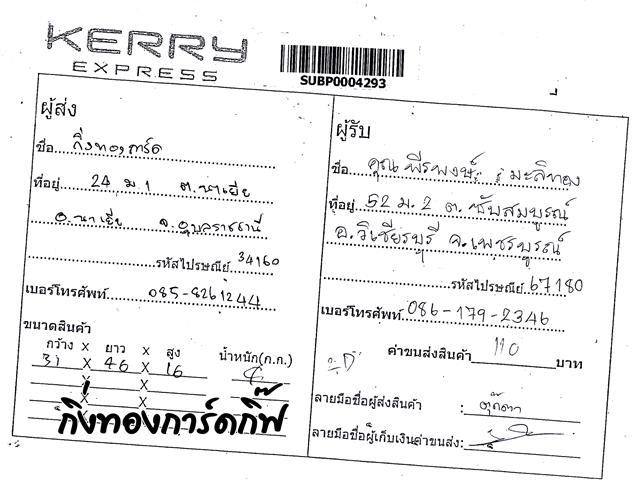 KERRY
EXPRESS
SUBP0004293
ผู้ส่ง
ชื่อ กิ่งทองการ์ด
ที่อยู่ 24 ม 1 ต.นาเยีย
อ.นาเยีย จ.อุบลราชธานี
รหัสไปรษณีย์ 34160
เบอร์โทรศัพท์ 085-8261244
ขนาดสินค้า
กว้าง x ยาว x สูง น้ำหนัก(ก.ก.)
31 X 46 X 16
X X
X X
กิ่งทองการ์ดกิ๊ฟ
ผู้รับ
ชื่อ คุณ พีรพงษ์ มะลิทอง
ที่อยู่ 52 ม.2 ต.ซับสมบูรณ์
อ.วิเชียรบุรี จ.เพชรบูรณ์
รหัสไปรษณีย์ 67180
เบอร์โทรศัพท์ 086-179-2346
ค่าขนส่งสินค้า 110 บาท
ลายมือชื่อผู้ส่งสินค้า : ตุ๊กตา
ลายมือชื่อผู้เก็บเงินค่าขนส่ง: